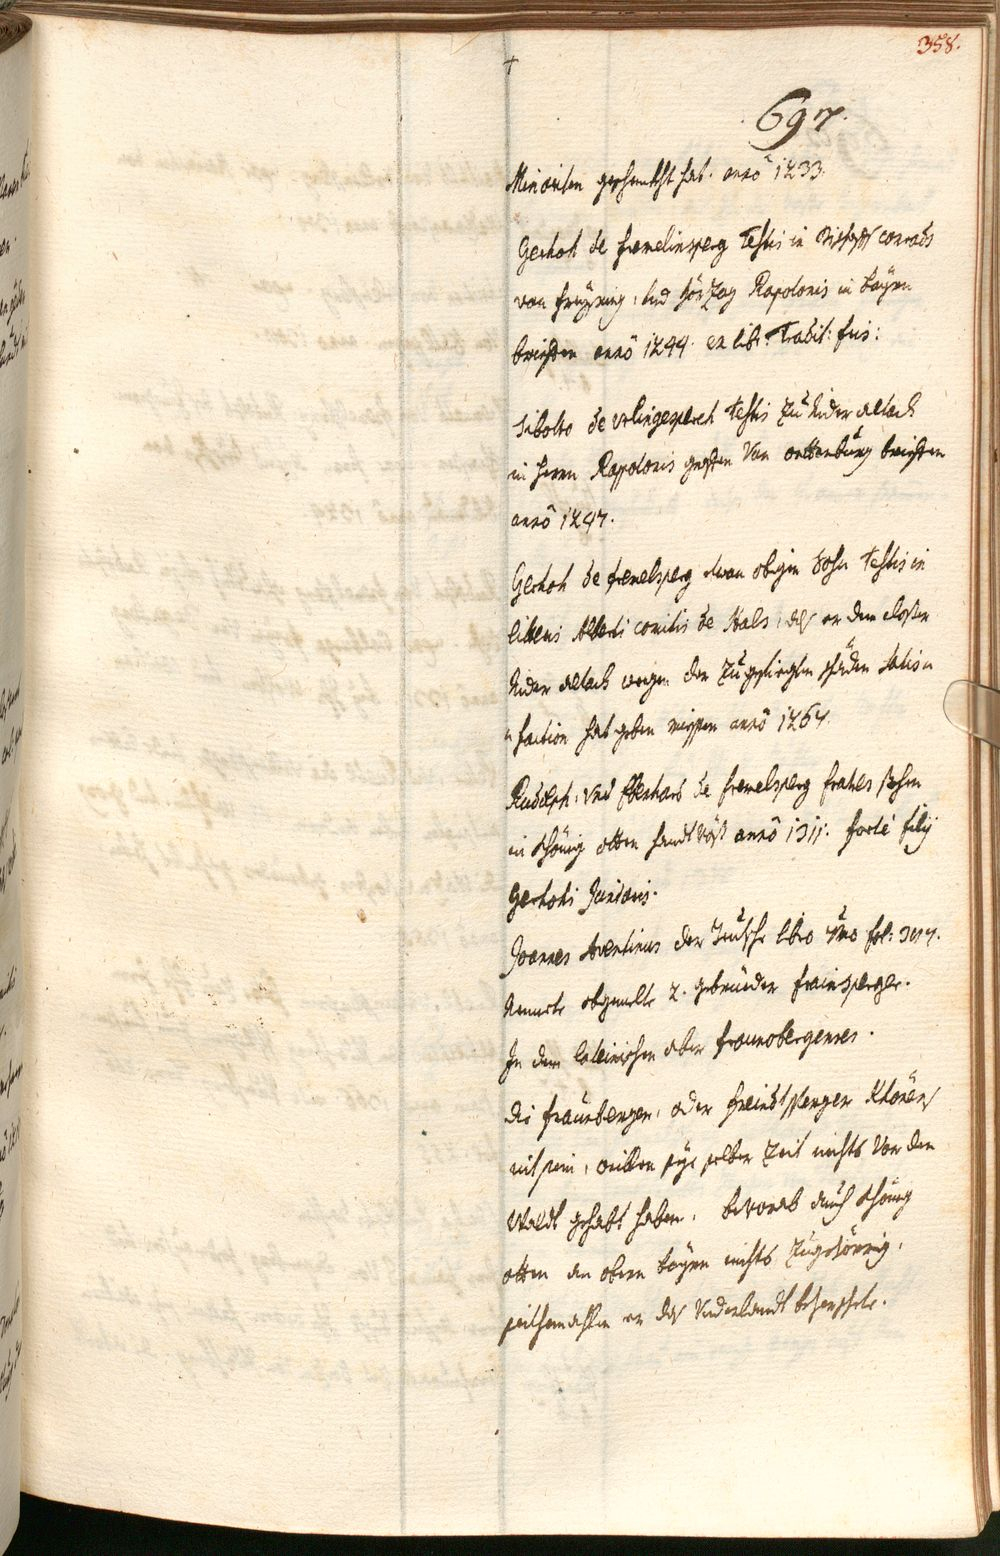 358.
697.
Minoriten geschenkht hat. annô 1233.
Gerhoh de fremelinsperg testis in Bischoffs conrads
von Freysing, und Hörzog Rapotonis in Bayrn
brieffen annô 1244. ex lib: Tradit: fris:
Sibolto de testis zu Nider Altach
in herrn Rapotonis grafen Von orttenburg brieffen
annô 1247.
Gerhoh de fremelsperg etwan obigen Sohn testis in
litteris Alberti comitis de Hals, das er dem closter
Nider Altach wegen der zugefiegten schäden satis=
=faction hat geben miessen annô 1264.
Rudolph, und Eberhard de fremelsperg fratres stehen
in Khönig otten handtvest annô 1311. forte filij
Gerhohi Junioris.
Joannes Aventinus der Teutsche libro 7mo fol:
Nennete obgemelte 2. gebrüeder fraunsperger.
In dem lateinischen aber fraunobergenses.
die fraunberger, oder freindtsperger Khönen
nit sein, weillen sye selber Zeit nichts Vor dem
Waldt gehabt haben. bevorab auch Khönig
otten in obern bayrn nichts zugehörrig,
seithemahlen er das Niderlandt beherschete.